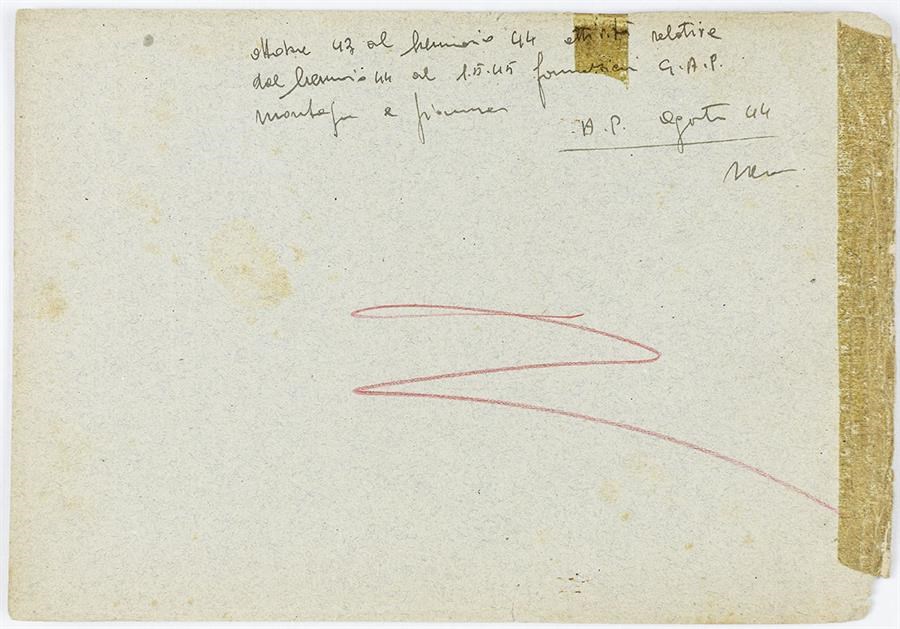 ottobre 43 al gennaio 44 attività relative
dal gennaio 44 al 1.5.45 formazioni G.A.P.
montagna e pianura
A.P. agosto 44